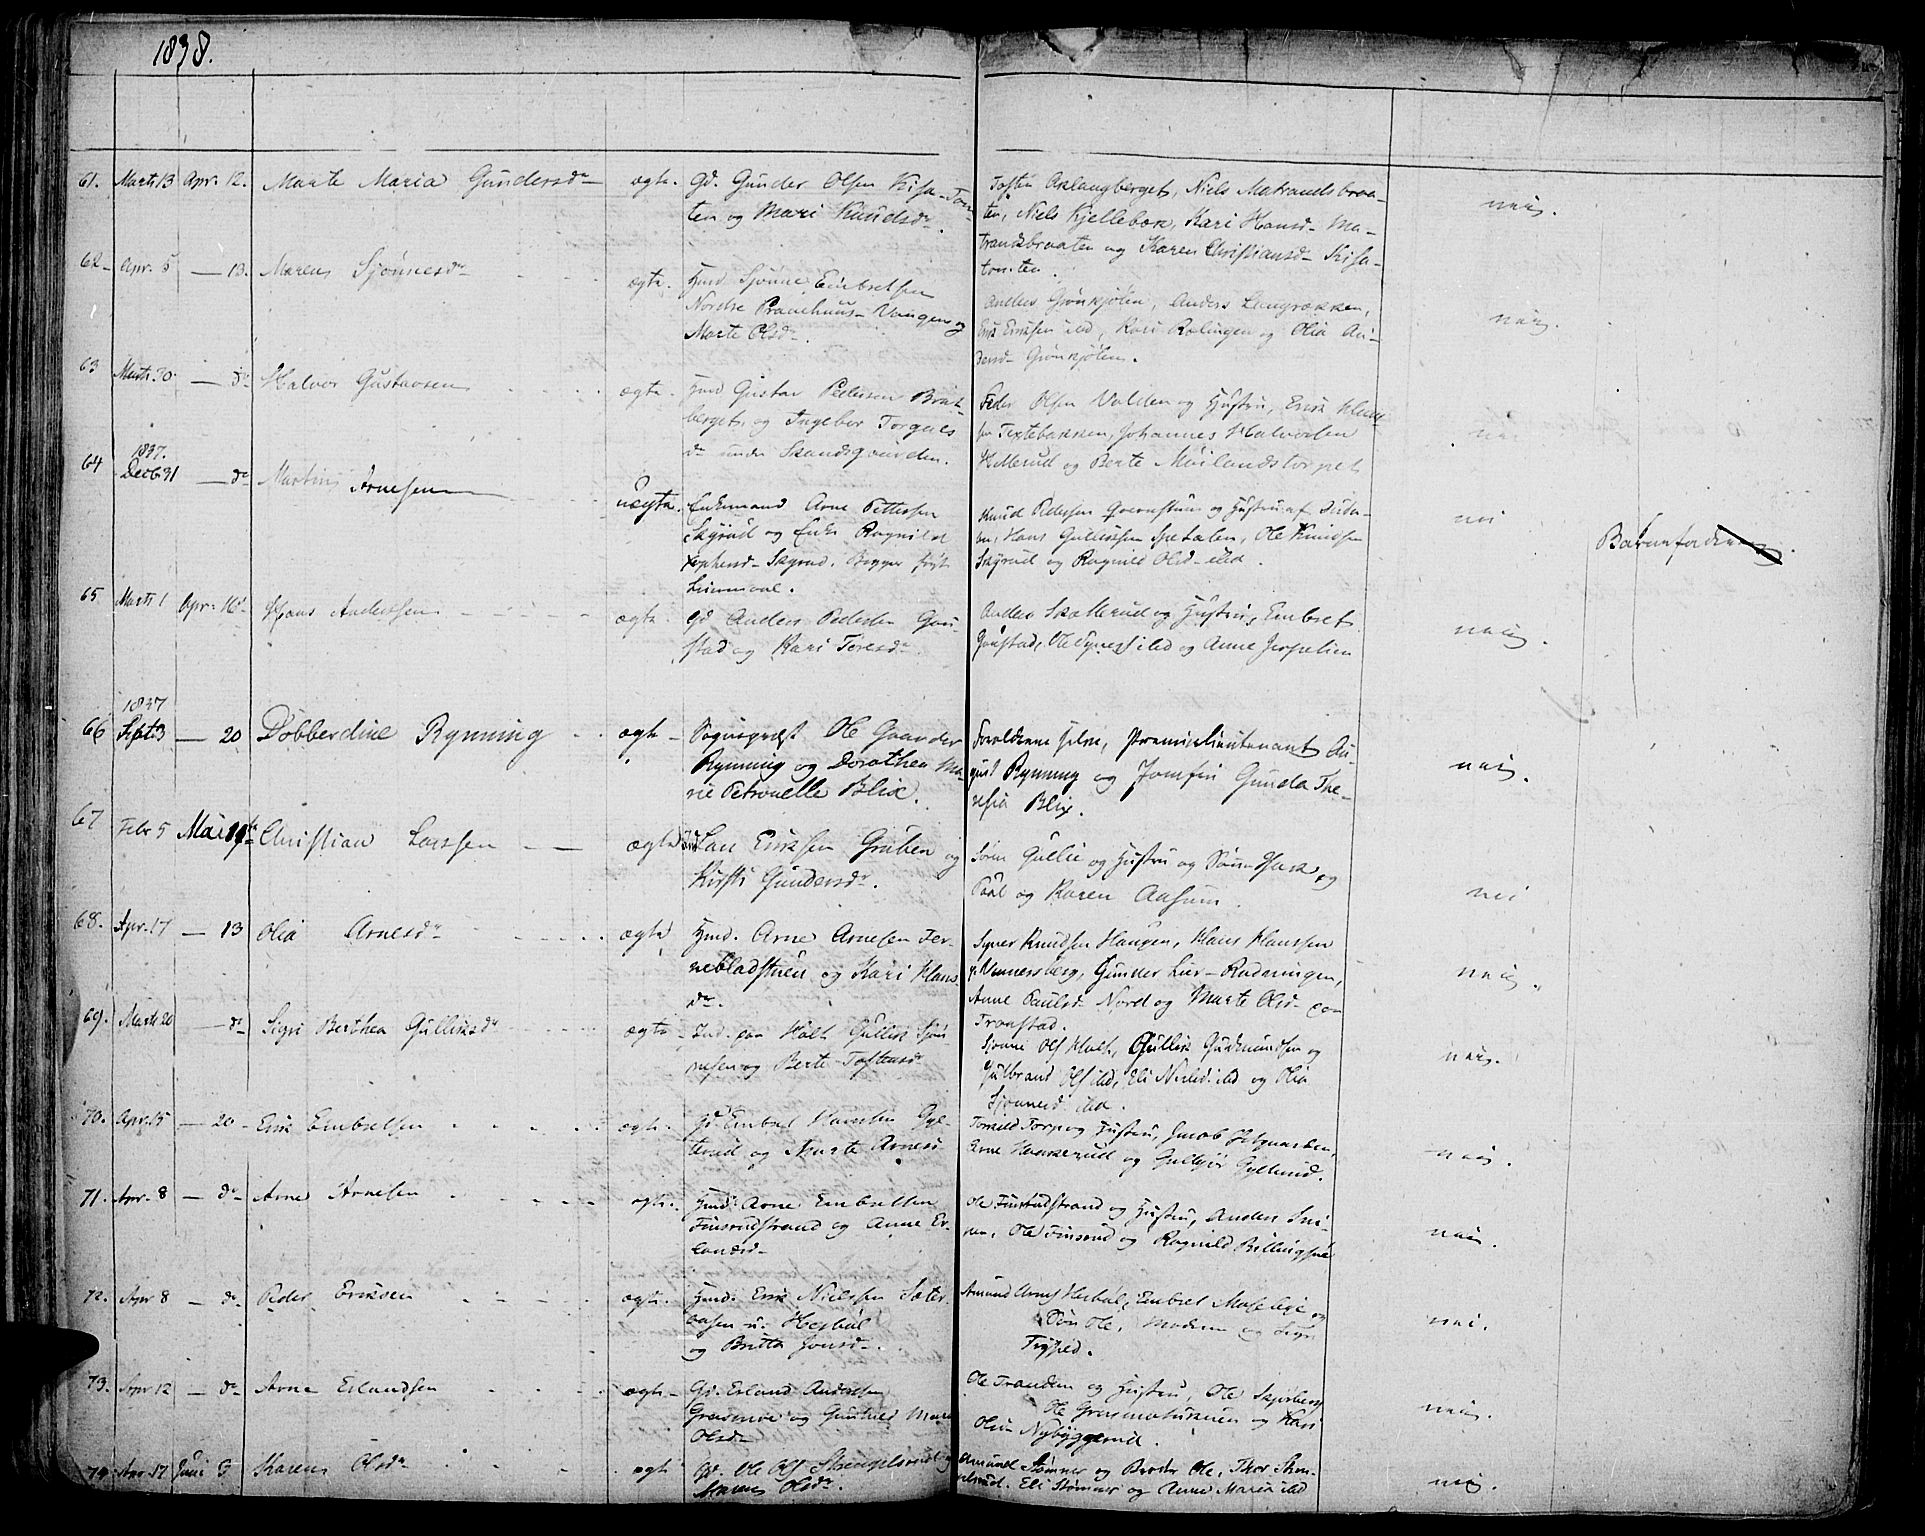 1838.
61. Marts 13 Apr. 12. Marte Maria Gundersdr ægte. Gd. Gunder Olsen Kisa-Tom-
ten og Mari Knudsdr.
Tosten Aslangberget, Niels Matrandsbraa-
ten, Niels Kjellebæk, Kari Hansd- Ma-
trandsbraaten og Karen Christiansd- Kisa-
tomten.
neig.
62- Apr. 5 — 13. Maren Sjønnesdr ægte. Hmd Sjønne Embretsen
Nordre Praashuus-Vangen og
Marte Olsdr.
Anders Grønkjølen, Anders Langrækken,
Erik Eriksen ibd, Kari Rælingen og Olia An-
dersd- Grønkjølen.
neig.
63 Marts 30. — do Halvor Gustavsen ægte. Hmd Gustav Pedersen Brat-
berget, og Ingebor Torgals
dr under Skandsgaarden.
Peder Olsen Volden og Hustru, Erik
Textebakken, Johannes Halvorsen
Hillerud og Berte Moilandstorpet
nei
64 1837. Decb 31 — do Martin Arnesen uægte. Enkemand Arne Pettersen
Skyrud og Enke Ragnild
Stephensd- Skyrud. Begges først
Leiermaal.
Knud Pedersen Qvernstuen og Hustru af
Hans Gulliksen Spetalen, Ole Knudsen
Skyrud og Ragnild Olsd- ibd.
nei
Barnefaderen.
65. Marts 1 Apr. 16 Hans Andersen ægte. Gd Anders Pedersen Gau-
stad og Kari Toresdr.
Anders Skotterud og Hustru, Embret
Gaustad, Ole Syvers ibd og Anne Jerpelien
neig.
66 1837 Sept. 3 — 20 Dobberdine Rynning ægte- Sognepræst Ole Gaarder
Rynning og Dorothea Ma-
rie Petronelle Blix.
Forældrene selve, Premierlieutenant Au-
gust Rynning og Jomfru Gunda The-
resia Blix.
neig.
67 Febr 5 Mai Christian Larsen ægte Lars Eriksen Gruben og
Kirsti Gundersdr.
Søren Gullie og Hustru og Søn Isak og
Paal og Karen Aasum.
nei
68. Apr. 17 — 13 Olia Arnesdr ægte Hmd. Arne Arnesen Jer-
nebladstuen og Kari Hans
dr.
Syver Knudsen Haugen, Hans Hanssen
Vennersberg, Gunder Lier-Rudningen,
Anne Paulsd- Nord og Marte Olsd- paa
Tronstad.
neig.
69. Marts 20 — do Sigri Berthea Gulliksdr ægte- Ind. paa Holt Gullik Sjøn
nesen og Berte Tostensdr
Sjønne Ols Holt, Gullik Gudmundsen og
Gulbrand Ols ibd, Eli Nielsd. ibd og Olia
Sjønnesd- ibd.
neig.
70. Apr. 15 — 20 - Erik Embretsen ægte. Gd Embret Hansen Gyl-
terud og Marte Arnesd
Torkild Torp og Hustru, Jacob Helgaarden,
Arne Haakerud og Gulbjør Gylterud.
neig.
71. Apr. 8 — do- Arne Arnesen ægte. Hmd. Arne Embretsen
Finsrudstrand og Anne Er-
landsd-
Ole Finsrudstrand og Hustru, Anders Sni-
pen, Ole Finsrud og Ragnild
neig.
72. Apr 8 — do- Peder Eriksen ægte. Hmd. Erik Nielssen Sæter-
aasen u. Hesbøl
og Britta Jonsd-.
Amund Arnes Hesbøl, Embret og
Søn Ole, Moderen og Sigri
nei.
73. Apr 12 — do Arne Erlandsen ægte- Gd. Erland Andersen
Græsmoe og Gunhild Marie
Olsd-
Ole Tranden og Hustru, Ole Skjørberg
Ole Græsmotuenen og Kari
Olsd- Nybyggerud.
neig.
74 Apr. 17 Juni 3 Karen Olsdr ægte Gd. Ole Ols Skinpelsrud og
Maren Olsdr.
Amund Stømner og Broder Ole, Thor Skin-
pelsrud. Eli Stømner og Anne Maria ibd
neig.